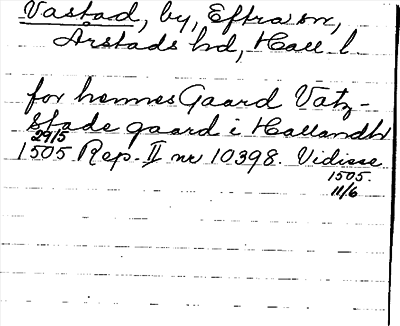 Vastad, by, Eftra sn,
Årstads hd, Hall. l.
for hennes Gaard Vatz-
stade gaard i Hallandh
29/5
1505 Rep. II nr 10398. Vidisse
1505.
11/6